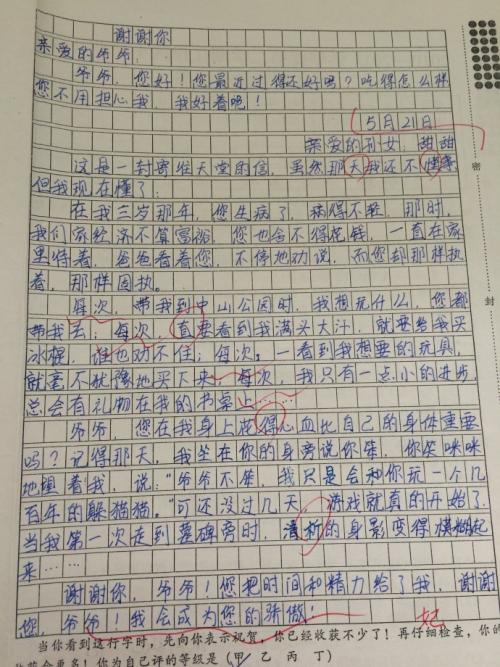 谢谢你
亲爱的爷爷,
爷爷,您好!您最近过得还好吗?吃得怎么样
您不用担心我,我好着呢!
5月21日
亲爱的孙女,甜甜
这是一封寄往天堂的信,虽然那天我还不懂事
但我现在懂了:
在我三岁那年,您生病了,病得不轻,那时,
我们家经济不算富裕,您也舍不得花钱,一直在家
里待着,爸爸看着您,不停地劝说,而您却那样执
着,那样固执。
每次,带我到中山公园时,我想玩什么,您都
带我去;每次,直要看到我满头大汗,就要给我买
冰棍,谁也劝不住;每次,一看到我想要的玩具,
就毫不犹豫地买下来;每次,我只有一点小的进步,
总会有礼物在我的书桌上……
爷爷,您在我身上花得心血比自己的身体重要
吗?记得那天,我坐在你的身旁说你笨,你笑咪咪
地望着我,说:“爷爷不笨,我只是会和你玩一个几
百年的躲猫猫。”可还没过几天,游戏就真的开始了,
当我第一次走到墓碑旁时,清晰的身影变得模糊起
来……
谢谢你,爷爷!您把时间和精力给了我,谢谢
您,爷爷!我会成为您的骄傲!
当你看到这行字时,先向你表示祝贺,你已经收获不少了!再仔细检查,你的
收获会更多!你为自己评的等级是(甲 乙 丙 丁)
密
封